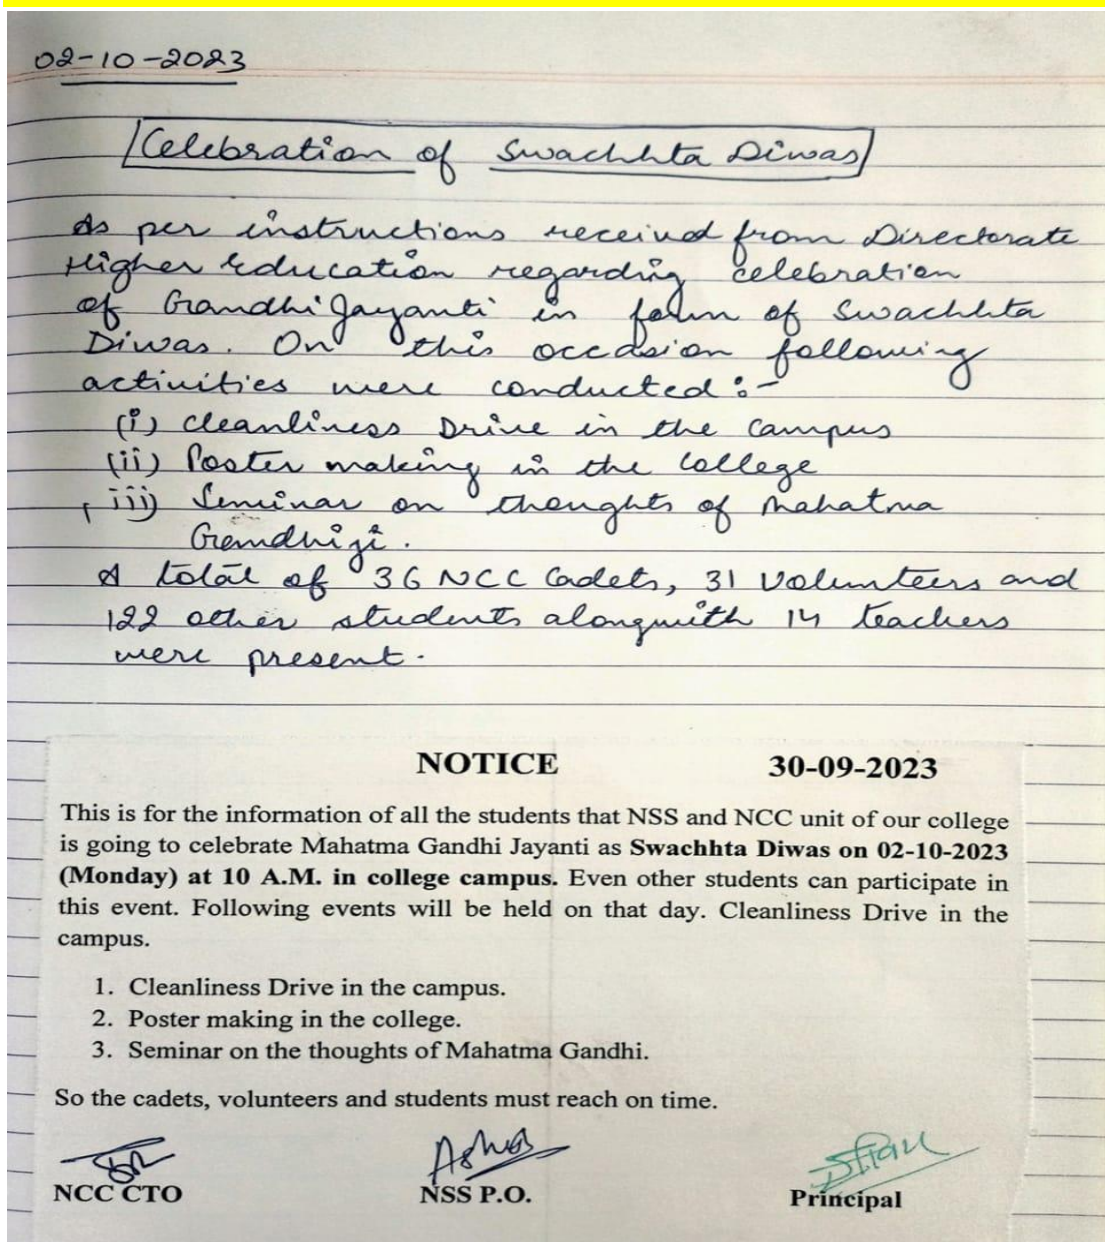 02-10-2023
Celebration of Swachhta Diwas
As per instructions received from Directorate
Higher Education regarding celebration
of Gandhi Jayanti in form of Swachhta
Diwas. On this occasion following
activities were conducted:-
(i) Cleanliness Drive in the campus
(ii) Poster making in the College
(iii) Seminar on thoughts of Mahatma
Gandhiji.
A total of 36 NCC Cadets, 31 Volunteers and
122 other students alongwith 14 teachers
were present.
NOTICE 30-09-2023
This is for the information of all the students that NSS and NCC unit of our college
is going to celebrate Mahatma Gandhi Jayanti as Swachhta Diwas on 02-10-2023
(Monday) at 10 A.M. in college campus. Even other students can participate in
this event. Following events will be held on that day. Cleanliness Drive in the
campus.
1. Cleanliness Drive in the campus.
2. Poster making in the college.
3. Seminar on the thoughts of Mahatma Gandhi.
So the cadets, volunteers and students must reach on time.
NCC CTO NSS P.O. Principal